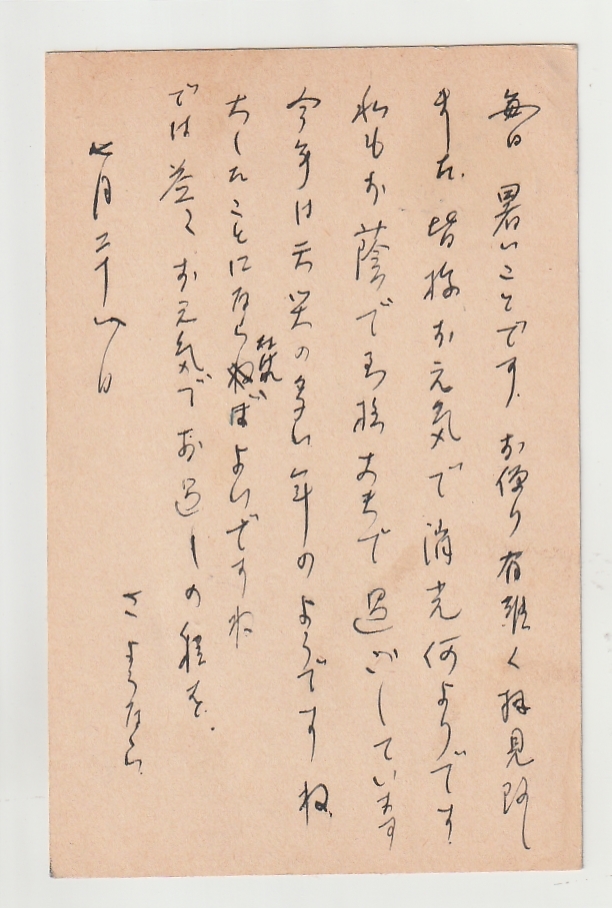 毎日 暑いことです。お便り有難く拝見致し
ました。皆様お元気で消光何よりです。
私もお蔭で 丈夫で過ごしています
今年は天災の多い年のようですね。
大したことにならねばよいですね
では益々お元気でお過しの程を。
さようなら
七月二十八日